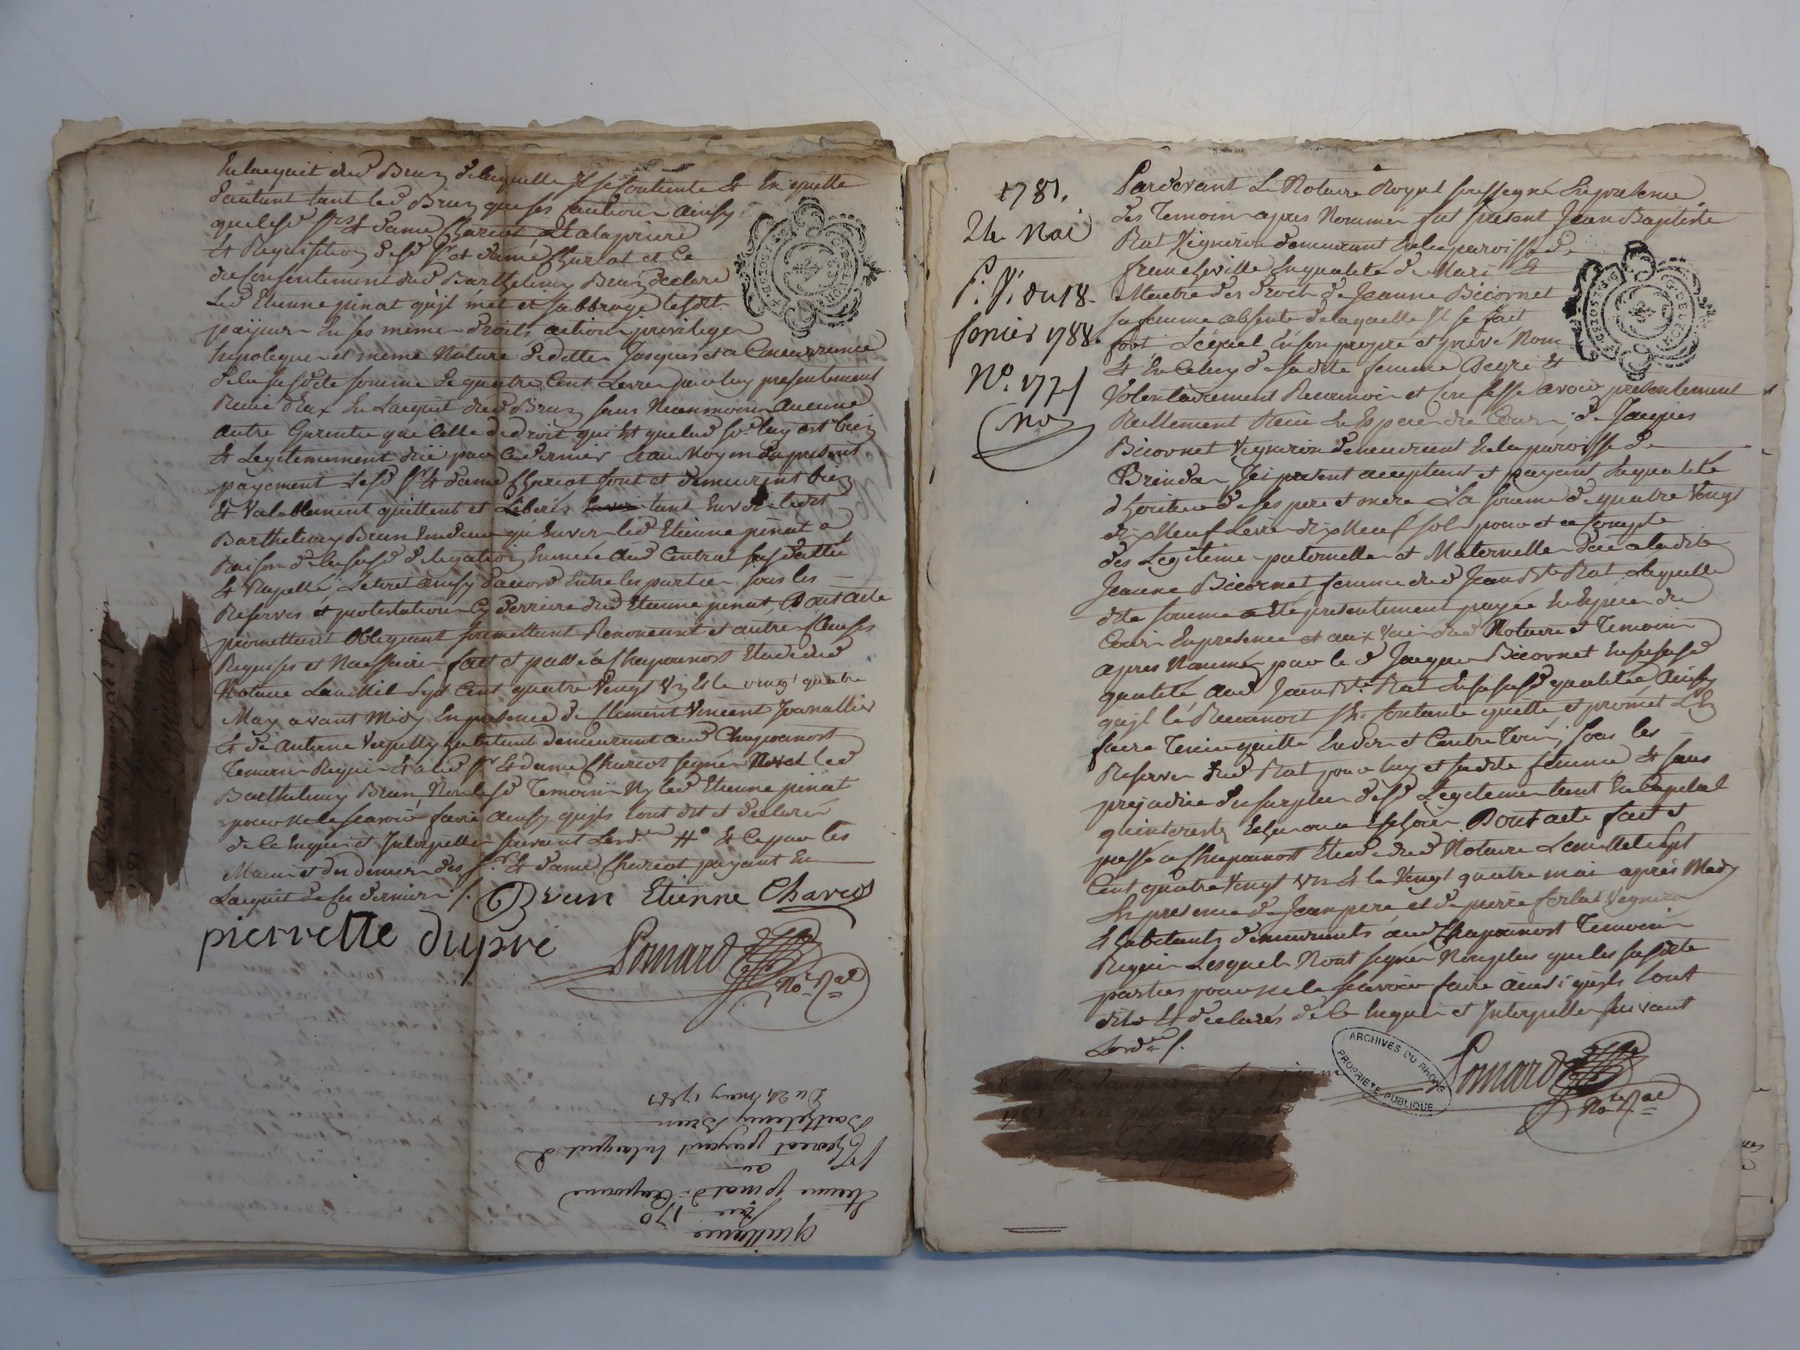 En lacquit dud Brun de laquelle Il se Contente Et En quitte
d'autant tant led Brun que ses cautions ainsy
que lesd Srs et dame Charcot Et a la priere
Et Requisition desd Sr et dame Charcot et Ce
du Consentement dud Barthelemy Brun declare
Led Etienne pinat quil met et subroge lesdt
payeurs En ses meme droits, actions privilege
hipoteque et meme Nature de dette Jusques et a Concurrence
de la susdte somme de quatre Cent Livres que luy presentement
Recue d'eux En Lacquit dud Brun sans Neanmoins aucune
autre Garentie que Celle de droit qui Est que lad so. luy est bien
Et Legitemement due pour Ce dernier Et au Moyen du present
payement Lesd Sr Et dame Charcot sont et demeurent bien
Et Valablement quittent et Liberés tant Envers ledt
Barthelemy Brun Vendeur qu'Envers led Etienne pinat a
Raison de la susd delegation Enoncé aud Contrat susdatté
Et Rapellé, Letout ainsy daccord Entre les parties sous les
Reserves et protestations Cy derriere dud Etienne pinat, Dont acte
promettant Obligeant soumettant Renoncent et autres Clauses
Requises et Necessaires fait et passé a Chaponost Etude dud
Notaire Lan Mil Sept Cent quatre Vengt Un Et le vengt quatre
May avant Midy En presence de Clement Vincent Journallier
Et de Antoine Verpilly habitant demeurant aud Chaponost
Temoins Requis Et a led Sr Et dame Charcot segné Avec led
Barthelemy Brun, Non lesd Temoins Ny led Etienne pinat
pour ne le scavoir faire ainsy quils lont dit et declaré
de Ce Enquis et Interpellé suivant Lord.ce /.º Et Ce par les
Mains et des deniers desd Sr Et dame Charcot payant En
Lacquit de Ce dernier /.
Brun Etienne Charcot
pierrette dupré
Ponard
No. Ral
quittance
170
Etienne pinat de Chaponost
au
Sr Charcot payant En lacquit de
Barthelemy Brun
Du 24 may 1781
1781.
24 Mai
P. V. du 18
fevrier 1788.
Nº. 177
Pardevant Le Notaire Royal soussegné En presence
des Temoins apres Nommer fut present Jean Baptiste
Rat Vigneron demeurant En la paroisse de
francheville En qualité de Mari Et
Maitre des droits de Jeanne Bicornet
sa femme absente de laquelle Il se fait
fort Lequel En son propre et privé Nom
Et En Celuy de sadite femme De gré Et
Volontairement Reconnoit et Confesse avoir presentement
Reellement Recu En Espece du Cour, de Jacques
Bicornet Vigneron demeurant En la paroisse de
Brindas, Ici present acceptant et payant En qualité
d'heritier de ses pere et mere La somme de quatre Vengt
dix Neuf Livre dix Neuf sols pour et a Compte
des Legiteme paternelle et Maternelle due a ladite
Jeanne Bicornet femme dud Jean Bte Rat, Laquelle
dite somme a Eté presentement payée En Espece du
Cour En presence et aux Vuë dud Notaire et Temoins
apres Nommés par led Jacques Bicornet En sa susd
qualité aud Jean Bte Rat En sa susd qualité Ainsy
quil le Reconnoit S'En Contente quitte et promet L'En
faire Tenir quitte Envers et Contre Tous, sous les
Reserves dud Rat pour luy et sadite femme Et sans
prejudice du surplus desd Legitemes tant En Capital
qu'interests Echu ou a Echoir Dont acte fait et
passé a Chaponost Etude dud Notaire Lan Mil Sept
Cent quatre Vengt Un Et le Vengt quatre mai aprés Midy
En presence de Jean pere et de pierre ferlat Vigneron
Et habitants demeurants aud Chaponost Temoins
Requis Lesquels N'ont segné Non plus que les susdite
parties pour ne le scavoir faire ainsi quils lont
dits Et declarés de Ce Enquis et Interpellé suivant
Lordce /.
ARCHIVES DU RHONE
PROPRIETE PUBLIQUE
Ponard
Nore Ral